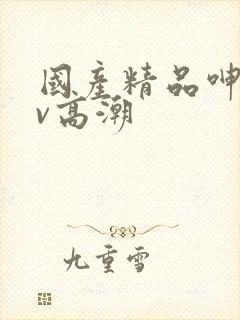 國產精品呻
v高潮
九重雪